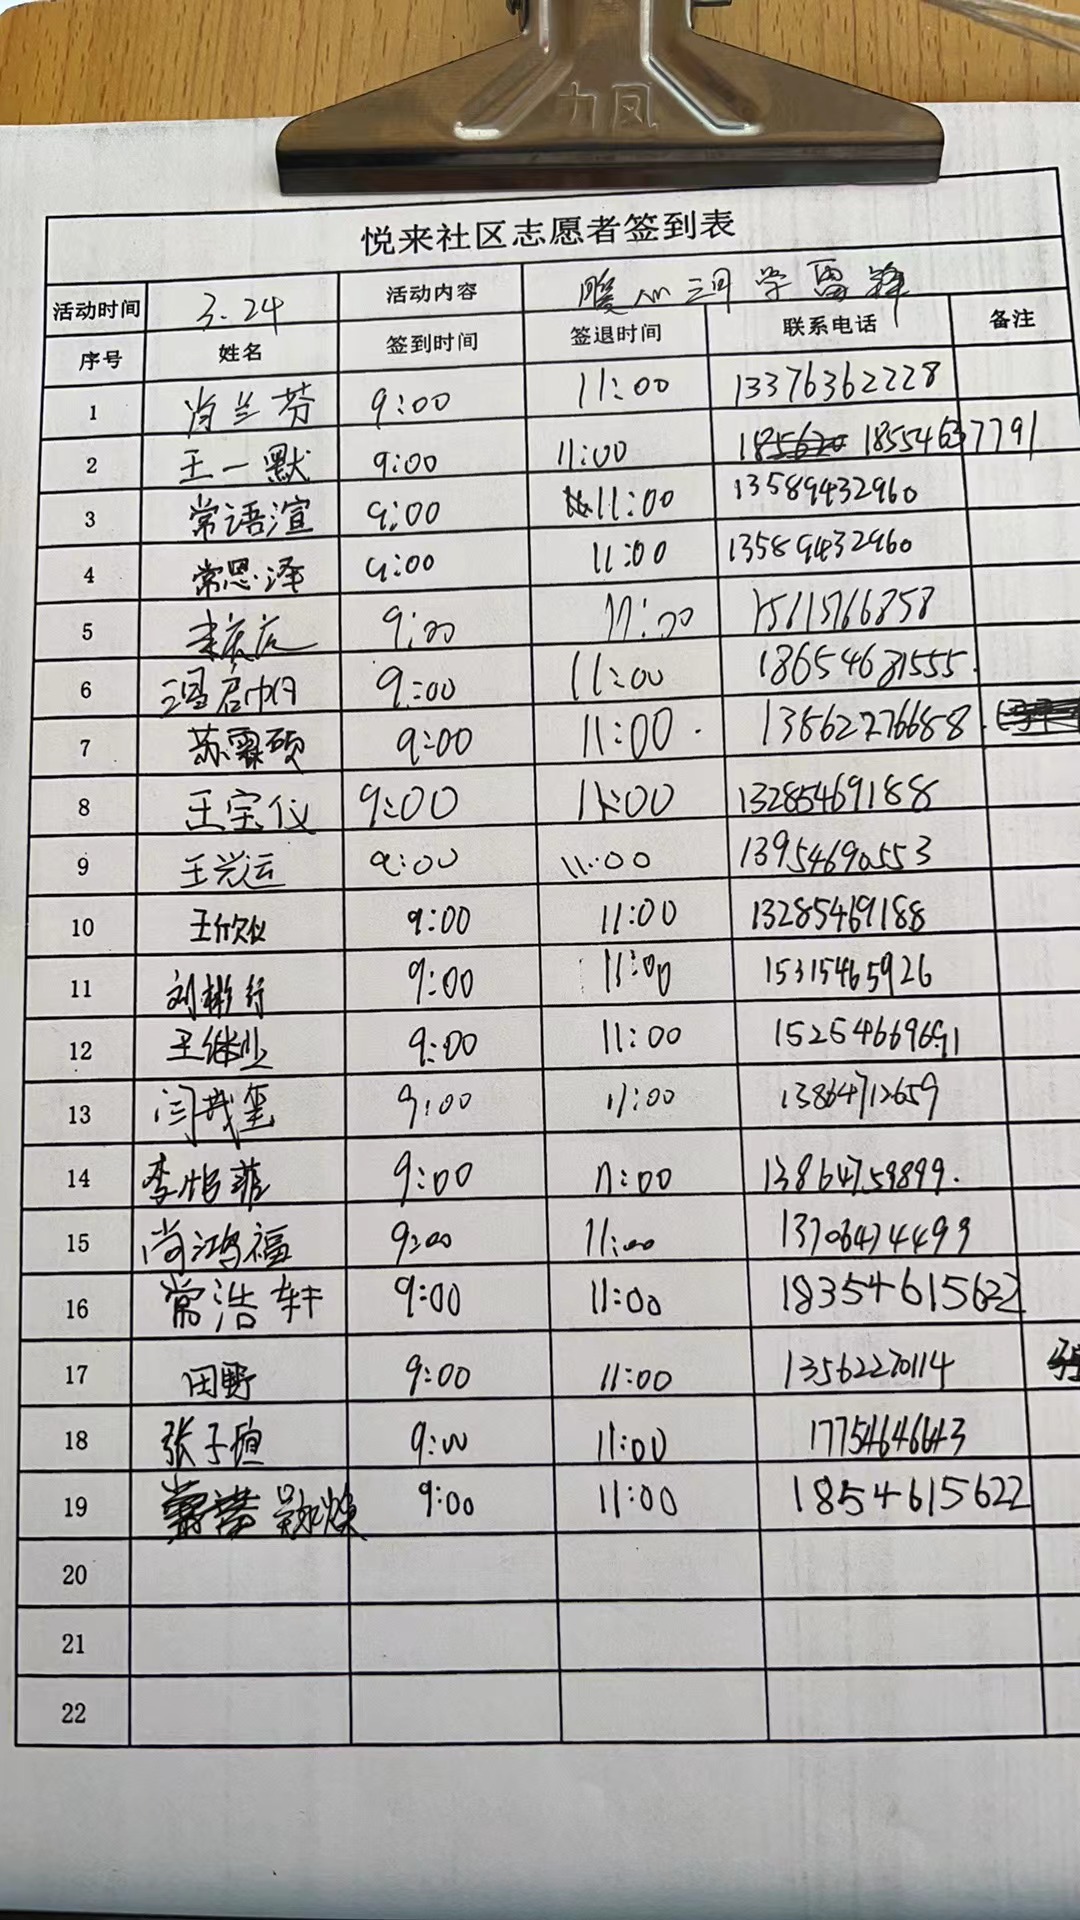 力风
悦来社区志愿者签到表
活动时间 3.24 活动内容 暖心三月学雷锋
序号 姓名 签到时间 签退时间 联系电话 备注
1 肖兰芬 9:00 11:00 13376362228
2 王一默 9:00 11:00 18554637791
3 常语渲 9:00 11:00 13589432960
4 常恩泽 9:00 11:00 13589432960
5 9:00 11:00 15615766858
6 9:00 11:00 18654631555
7 苏霖硕 9:00 11:00 13562276688
8 王宝仪 9:00 11:00 13285469188
9 王兴运 9:00 11:00 13954690553
10 王欣仪 9:00 11:00 13285469188
11 刘彬行 9:00 11:00 15315465926
12 王继业 9:00 11:00 15254669691
13 闫我玺 9:00 11:00 13864712659
14 李怡菲 9:00 11:00 13864759899.
15 尚鸿福 9:00 11:00 13706474499
16 常浩轩 9:00 11:00 18354615622
17 田野 9:00 11:00 13562270114
18 张子恒 9:00 11:00 17754646643
19 9:00 11:00 1854615622
20
21
22